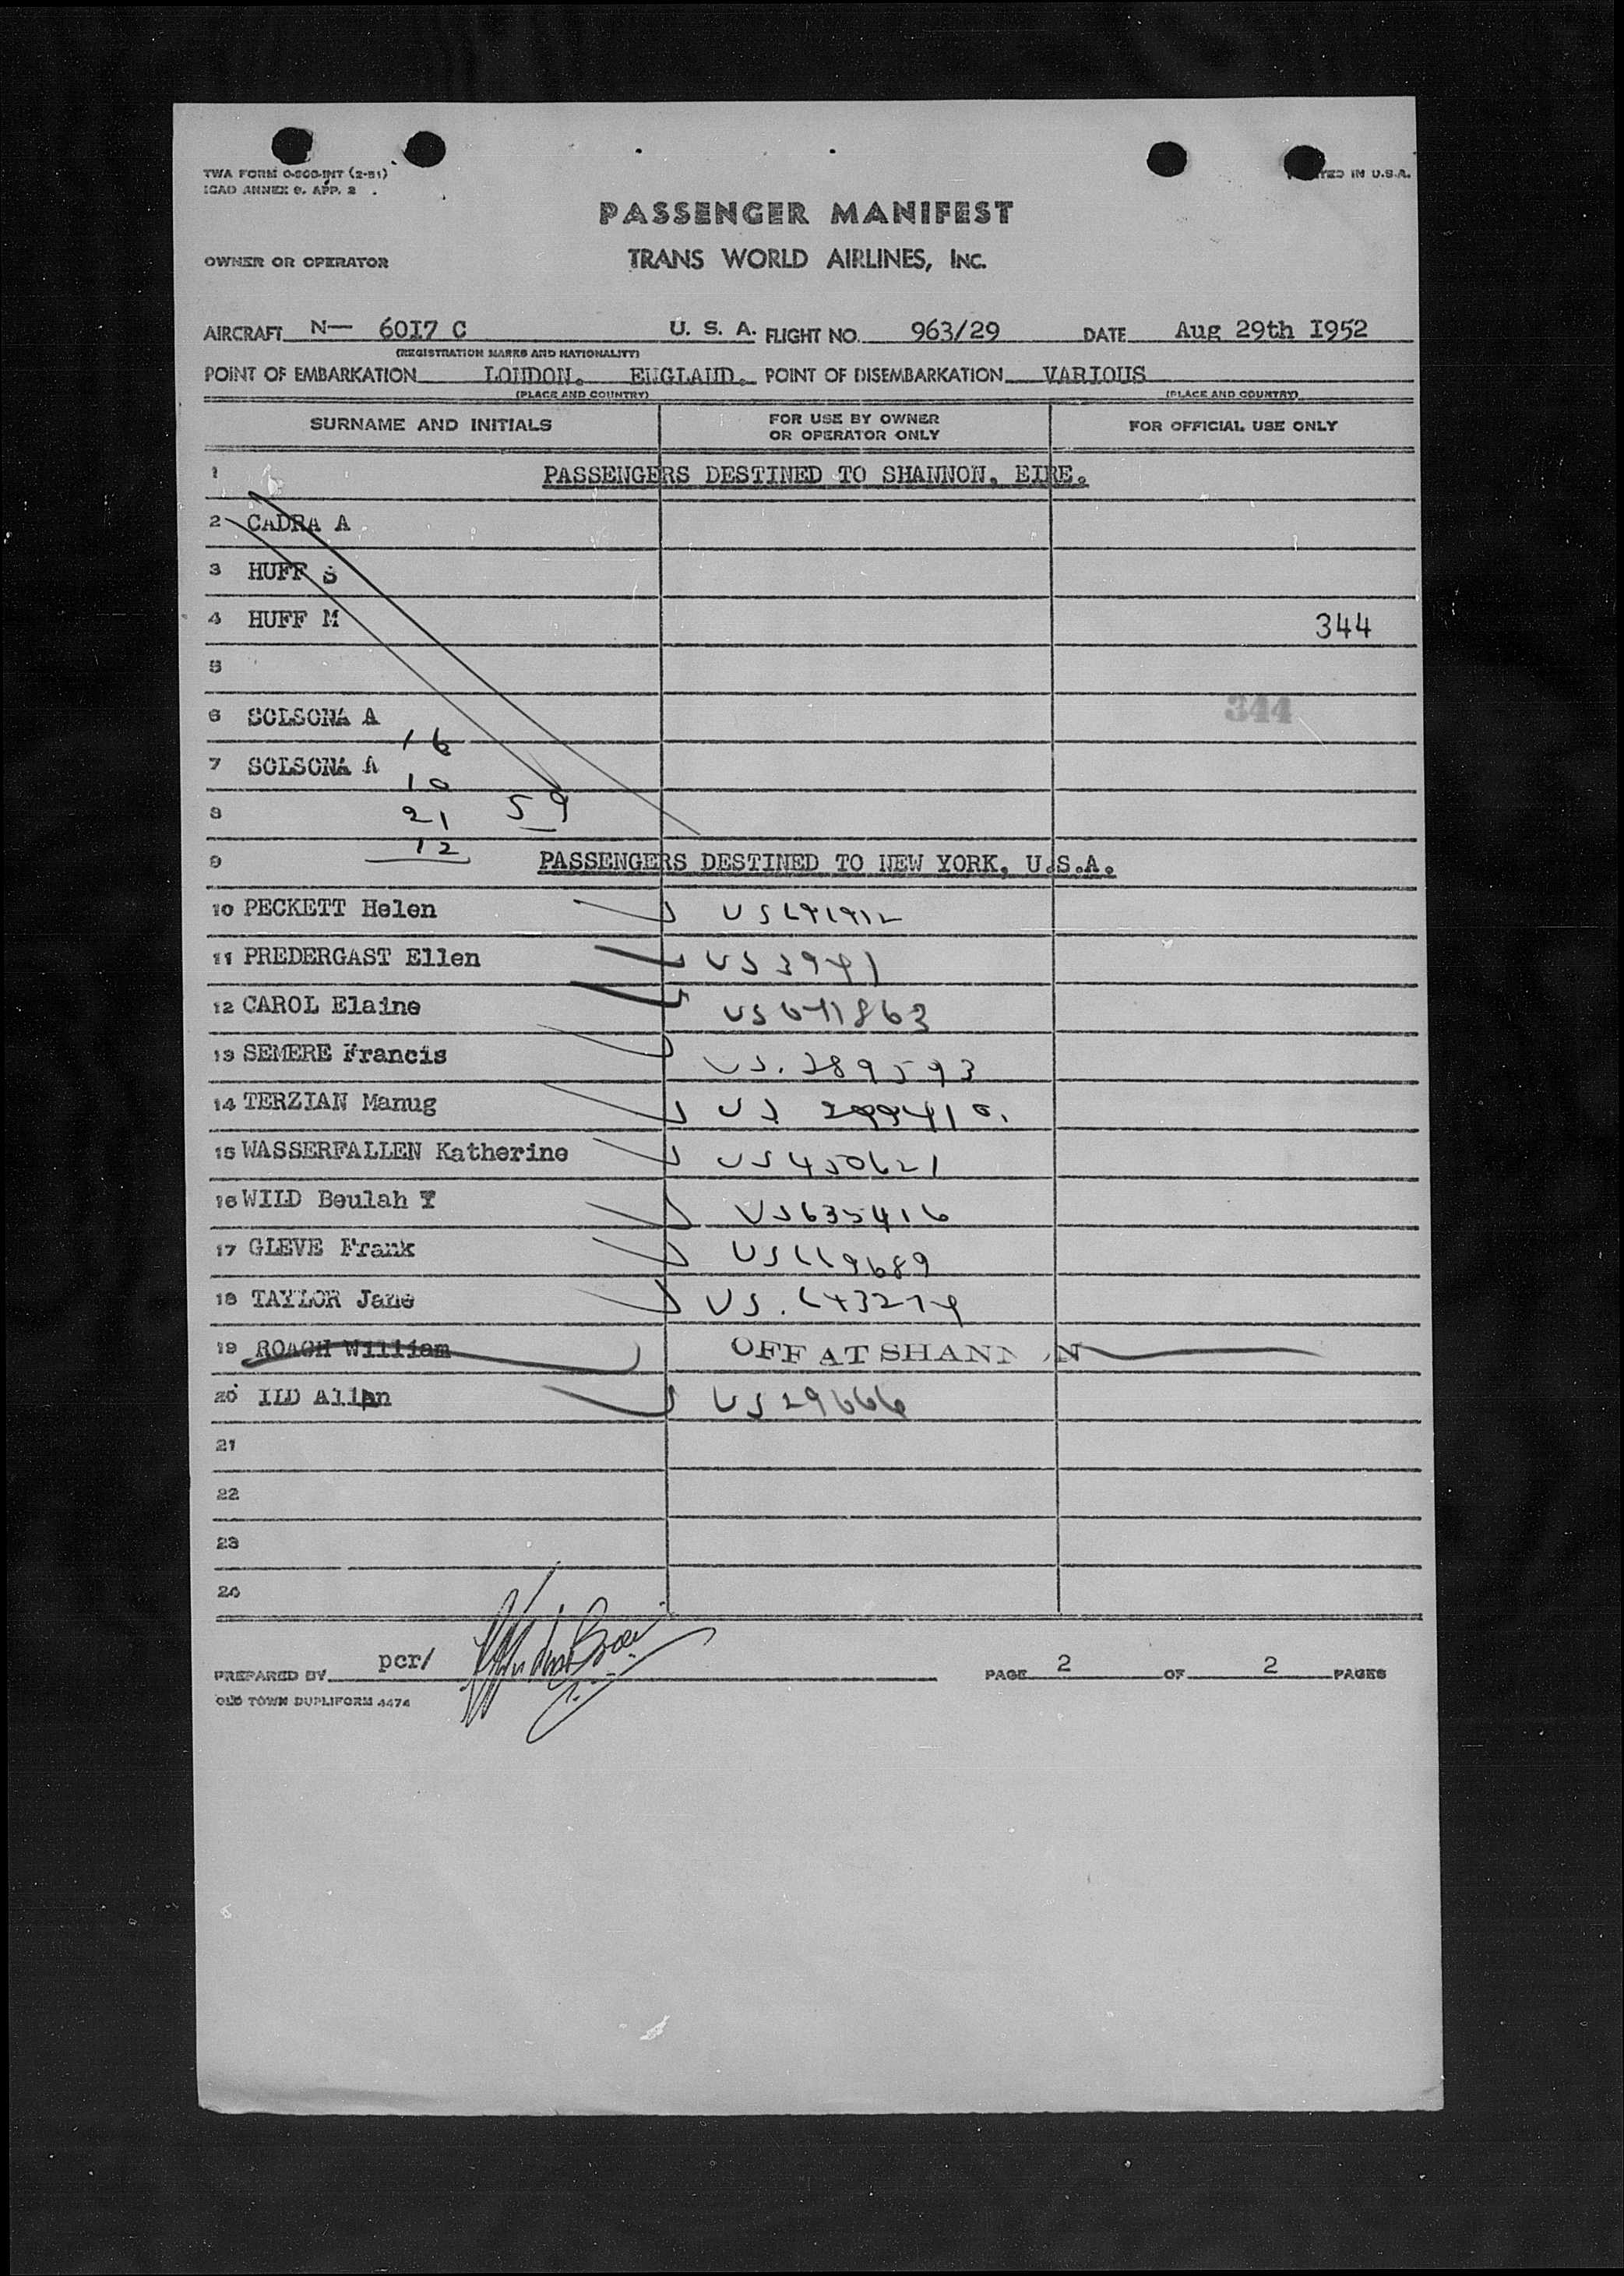 TWA FORM O-800-INT (2-51)
ICAO ANNEX 9. APP. 2
IN U.S.A.
PASSENGER MANIFEST
OWNER OR OPERATOR TRANS WORLD AIRLINES, INC.
AIRCRAFT N— 60I7 C U. S. A. FLIGHT NO. 963/29 DATE Aug 29th I952
(REGISTRATION MARKS AND NATIONALITY)
POINT OF EMBARKATION LONDON. ENGLAND. POINT OF DISEMBARKATION VARIOUS
(PLACE AND COUNTRY) (PLACE AND COUNTRY)
SURNAME AND INITIALS FOR USE BY OWNER OR OPERATOR ONLY FOR OFFICIAL USE ONLY
1 PASSENGERS DESTINED TO SHANNON, EIRE.
2 CADRA A
3 HUFF S
4 HUFF M 344
5
6 SOLSONA A 344
16
7 SOLSONA A
10
8 21 59
12
9 PASSENGERS DESTINED TO NEW YORK, U.S.A.
10 PECKETT Helen
11 PREDERGAST Ellen US 3941
12 CAROL Elaine US 641863
13 SEMERE Francis US. 289593
14 TERZIAN Manug US
15 WASSERFALLEN Katherine US 450621
16 WILD Beulah Y US 635416
17 GLEVE Frank US 119689
18 TAYLOR Jane US.
19 ROACH William OFF AT SHANNON
20 ILD Allan US 29666
21
22
23
24
PREPARED BY pcr/ PAGE 2 OF 2 PAGES
OLD TOWN DUPLIFORM 4474